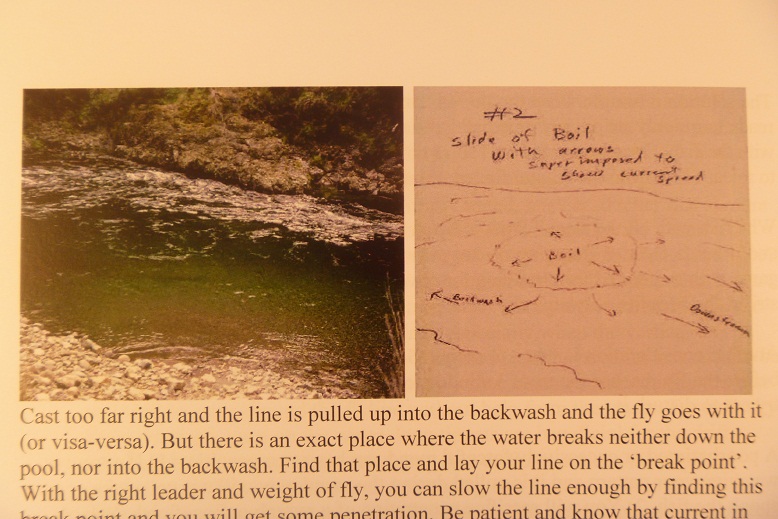 #2
Slide of Boil
With arrows
Superimposed to
show current
speed
Boil
Backwash
Downstream
Cast too far right and the line is pulled up into the backwash and the fly goes with it
(or visa-versa). But there is an exact place where the water breaks neither down the
pool, nor into the backwash. Find that place and lay your line on the ‘break point’.
With the right leader and weight of fly, you can slow the line enough by finding this
break point and you will get some penetration. Be patient and know that current in